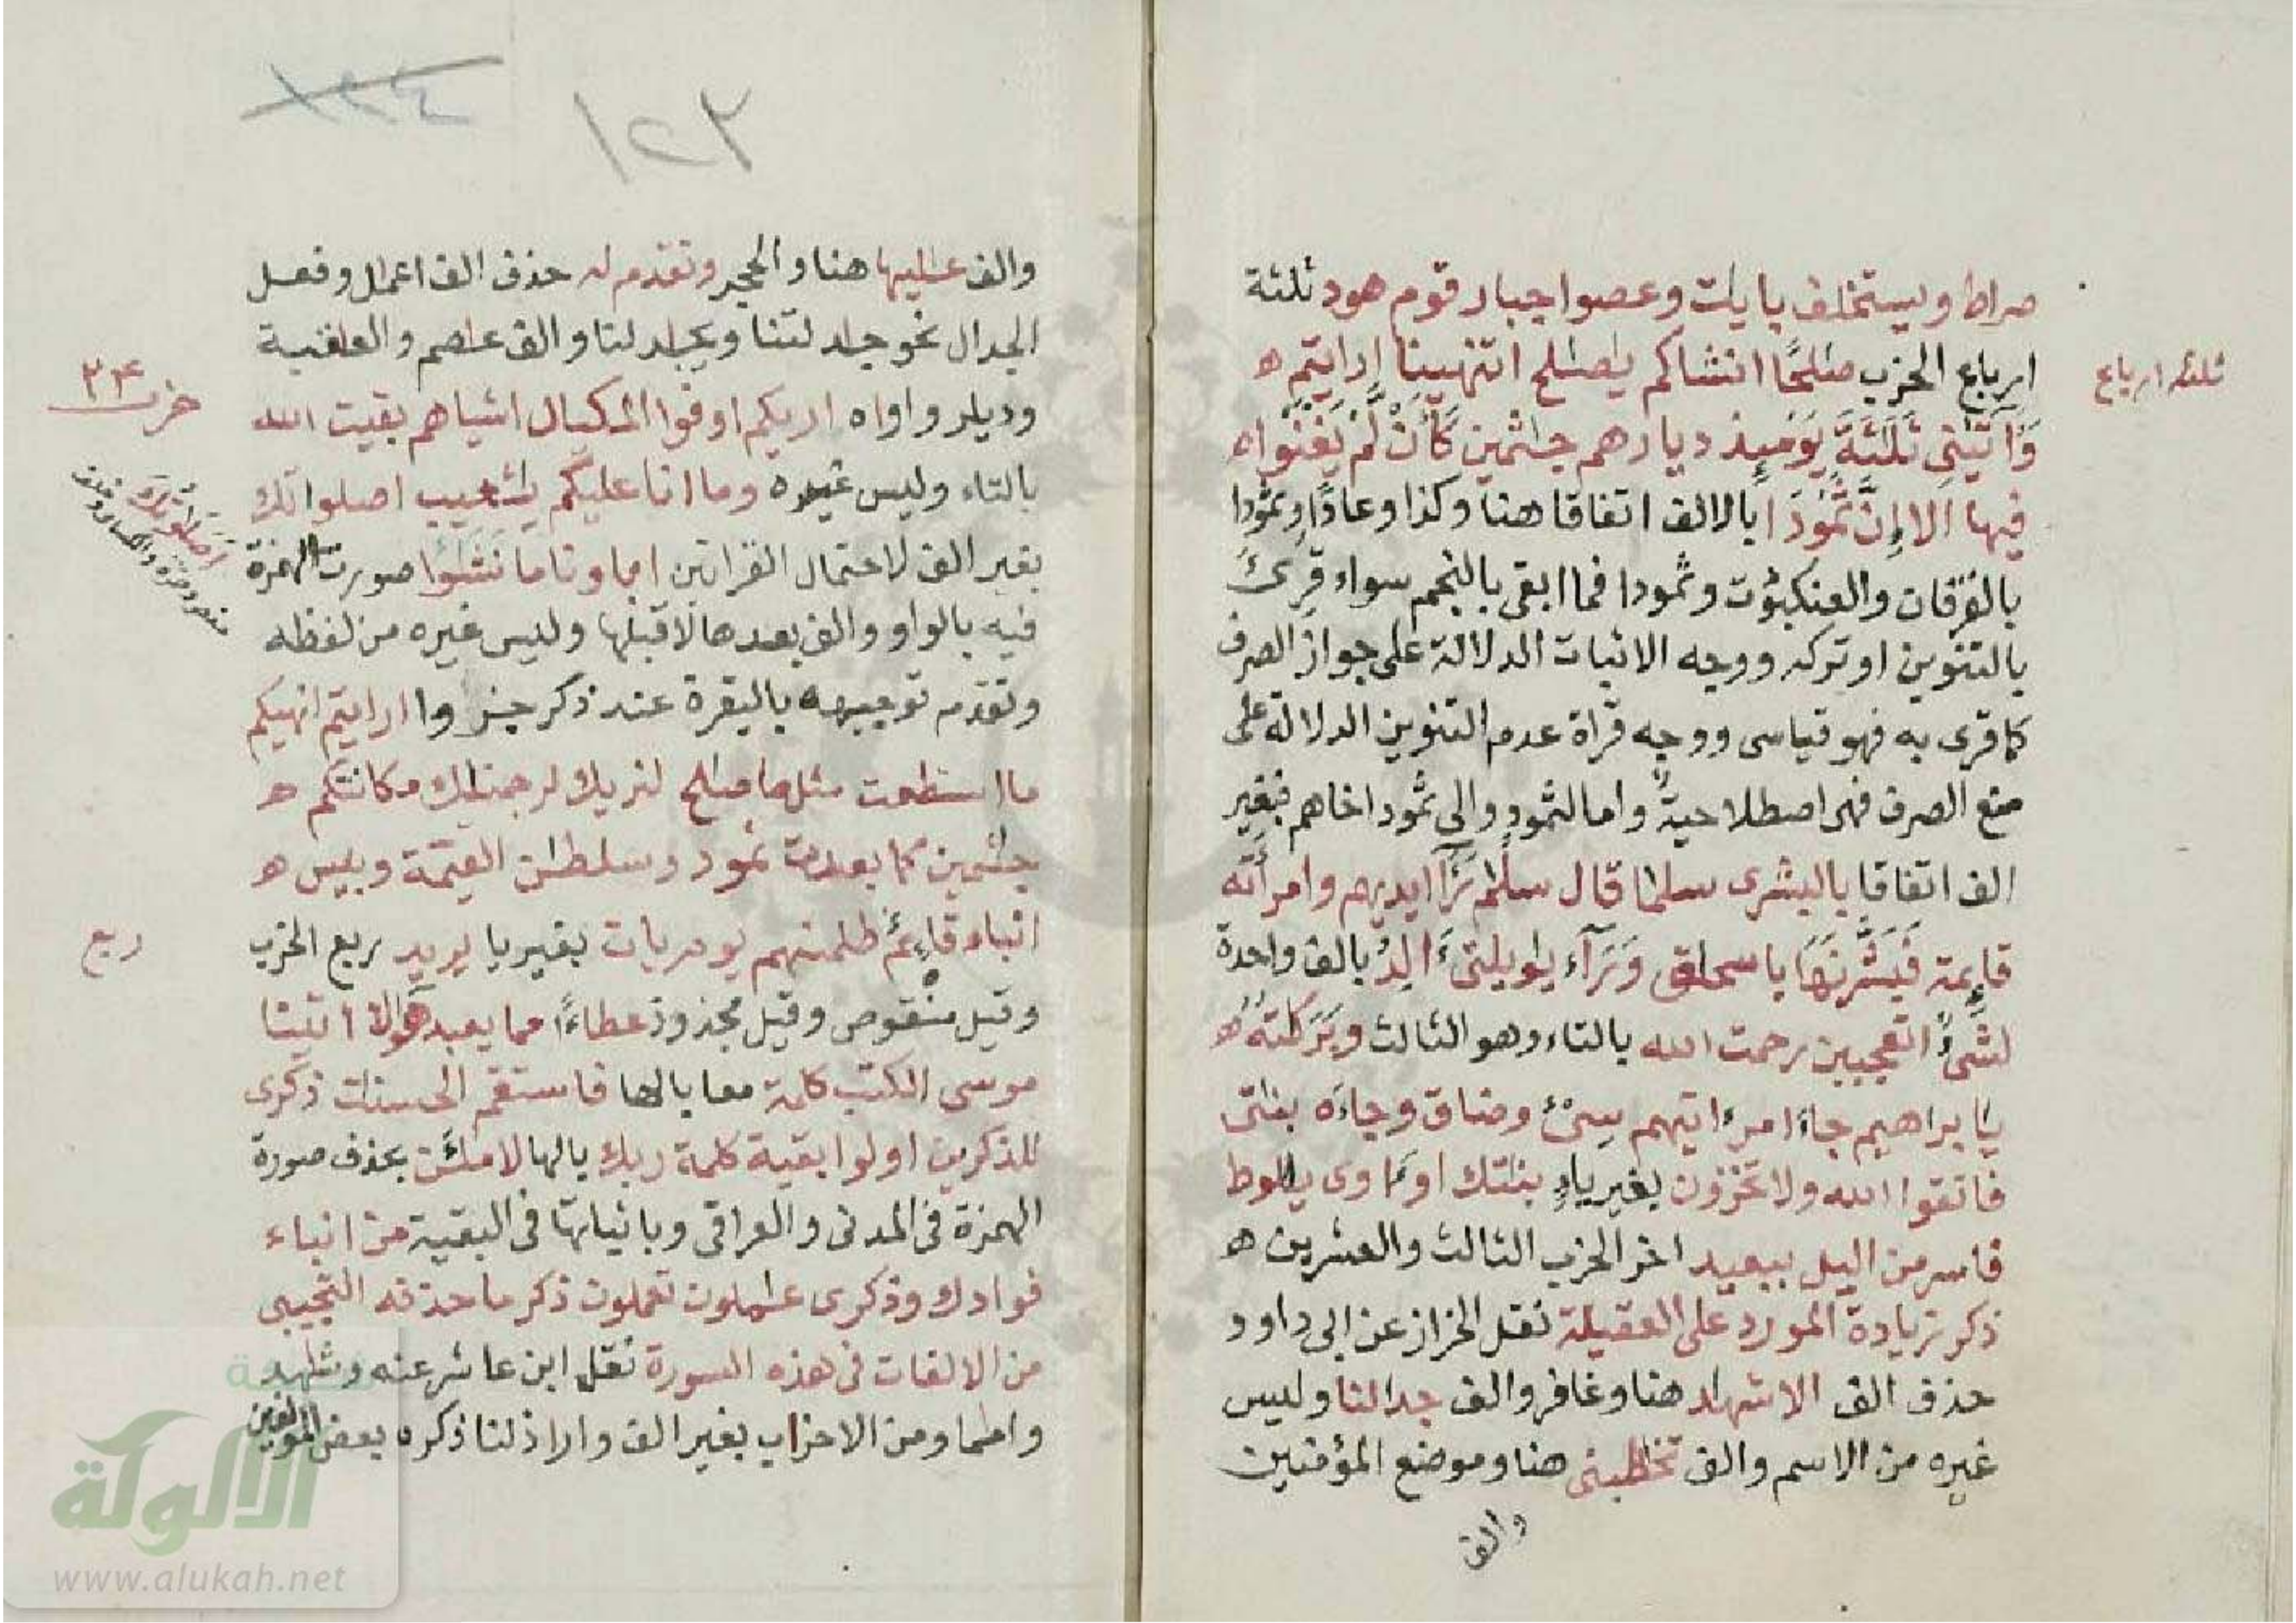 صراط ويستخلف بايلت وعصوا جبار قوم هود ثلثة
ثلثه ارباع
ارباع الحزب صلحًا انشاكم يصلح اتنهينا ارايتم ه
وَآتَيٰنِى ثَلَثَةَ يَوْمَئِذ ديارهم جثمين كَأَنْ لَّمْ يَغْنَوْا ه
فيها الا إِنَّ ثَمُودَا بالالف اتفاقا هنا وكذا وعادًا وثمودا
بالفرقان والعنكبوت وثمودا فما ابقى بالنجم سواء قرئ
بالتنوين او تركه ووجه الاثبات الدلالة على جواز الصرف
كما قرى به فهو قياسى ووجه قراة عدم التنوين الدلالة على
منع الصرف فهى اصطلاحية واما لثمود والى ثمود اخاهم فبغير
الف اتفاقا بالبشرى سلما قال سلم رَآ ايديهم وامرأته
قايمة فَبَشَّرْنَهَا باسحاق وَرَآء يويلتىٓ ءَالِدُ بالف واحدة
لشىءٌ اتعجبين رحمت الله بالتاء وهو الثالث وبَرَكَتُهُ ه
يابراهيم جاءَ امر ءاتيهم سِىٓءَ وضاق وجاءَه بناتى
فاتقوا الله ولا تخزون بغير ياء بنتك او ءاوى يلوط
فاسر من اليل ببعيد اخر الحزب الثالث والعشرين ه
ذكر زيادة المورد على العقيلة نقل الخراز عن ابى داود
حذف الف الاشهد هنا وغافر والف جدالنا وليس
غيره من الاسم والف تخطبنى هنا وموضع المؤمنين
والف
١٢٣
١٢٤
والف عليها هنا والحجر وتقدم له حذف الف اعمل وفعل
الجدال نحو جدلتنا ويجدلنا والف عصم والعقبة
حزب ٢٤
وديلر واواه اريكم اوفوا المكيال اشياهم بقيت الله
بالتاء وليس غيره وما انا عليكم يشعيب اصلواتك
أَصَلَوٰتُكَ
بغير الف لاحتمال القراتين اباوناما نشؤا صورت الهمزة
فيه بالواو والف بعدها لا قبلها وليس غيره من لفظه
وتقدم توجيهه بالبقرة عند ذكر جزاوا ارايتم انهيكم
ما استطعت مثل ما صلح لنريك لرجمنك مكانتكم ه
جثمين كما بعدت ثمود وسلطن القيمة وبيس ه
ربع
انباء قايم ظلمنهم يوم يات بغير يا يريد ربع الحزب
وقيل منقوص وقيل مجذوذ عطاءً مما يعبد هؤلاء اتينا
موسى الكتب كلمة معا بالها فاستقم الحسنت ذكرى
للذكرين اولوا بقية كلمة ربك بالها لاملئن بحذف صورة
الهمزة فى المدنى والعراقى وباثباتها فى البقية من انباء
فوادك وذكرى عملون تعملون ذكر ما حذفه التجيبى
من الالفات فى هذه السورة نقل ابن عاشر عنه وشهد
واماما ومن الاحزاب بغير الف واراذلنا ذكره بعض المولفين
الألوكة
www.alukah.net